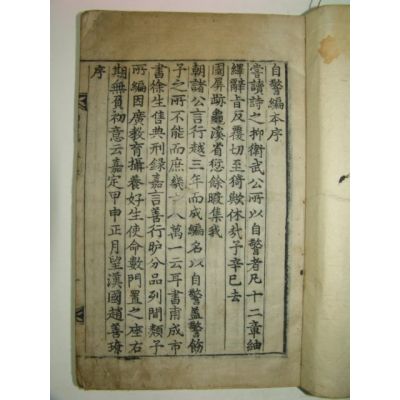 自警編本序
嘗讀詩之抑衛武公所以自警者凡十二章紬
繹辭旨反覆切至猗歟休㢤予辛巳去
國屏跡龜溪省愆餘暇集我
朝諸公言行越三年而成編名以自警盖警飭
予之所不能而庶幾人萬一云耳書甫成市
書徐生售典刑錄嘉言善行昈分品列間類予
所編因廣教育攝養好生使命數門置之座右
期無負初意云嘉定甲申正月望漢國趙善璙
序